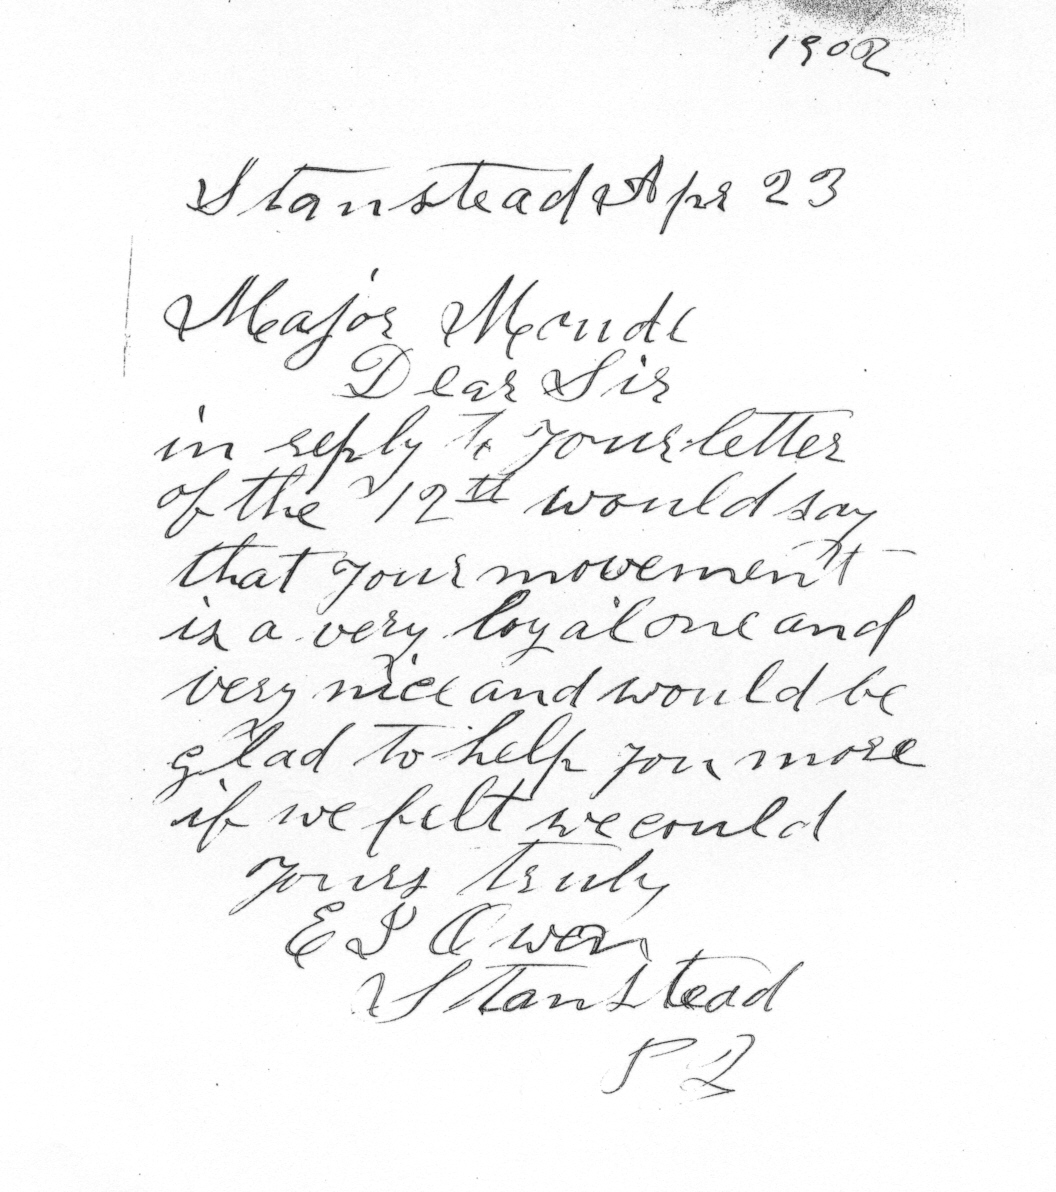 1902
Stanstead Apr 23
Major Maude
Dear Sir
in reply to your letter
of the 12th would say
that your movement
is a very loyal one and
very nice and would be
glad to help you more
if we felt we could
yours truly
E I Owen
Stanstead
P Q